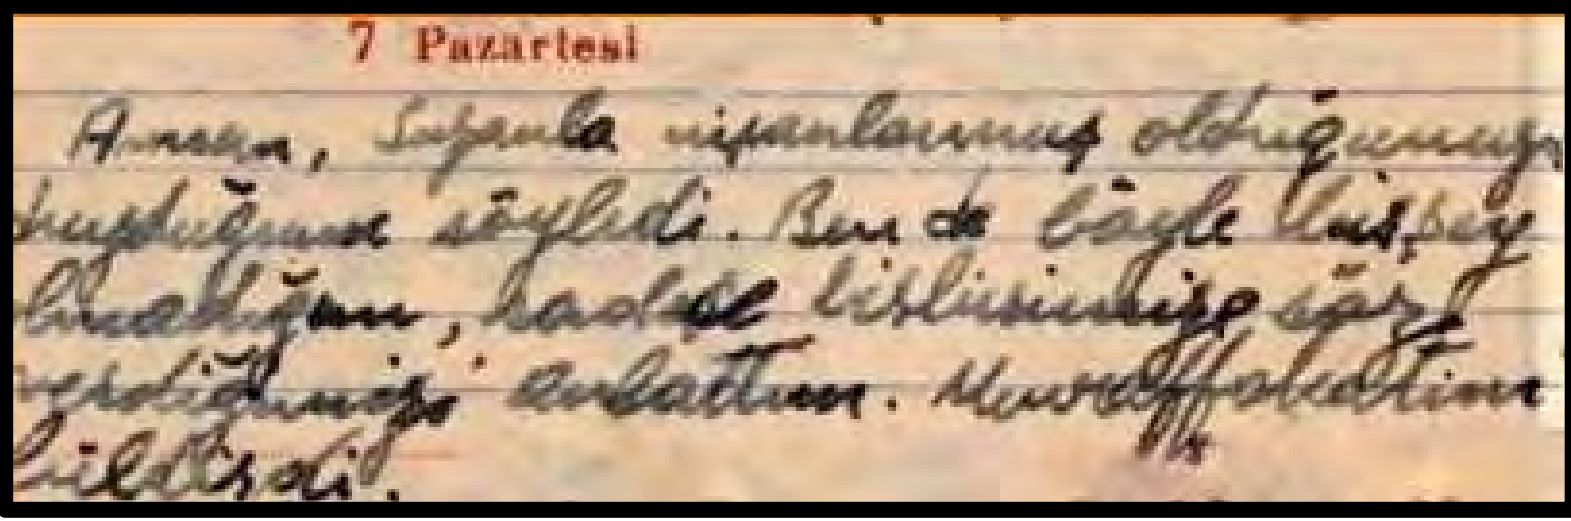 7 Pazartesi
Annem, Suzanla nişanlanmış olduğumuzu
duyduğunu söyledi. Ben de böyle bir şey
olmadığını, sadece birbirimize söz
verdiğimizi anlattım. Muvaffakatini
bildirdi.